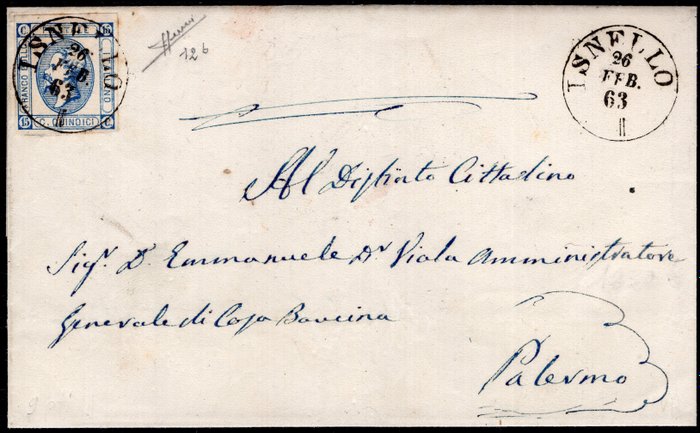 ISNELLO
26
FEB.
63
FRANCO BOLLO
C. QUINDICI
15
C
126
ISNELLO
26
FEB.
63
Al Distinto Cittadino
Sigr. Dn. Emmanuele Dr. Viola Amministratore
Generale di Casa Baucina
Palermo